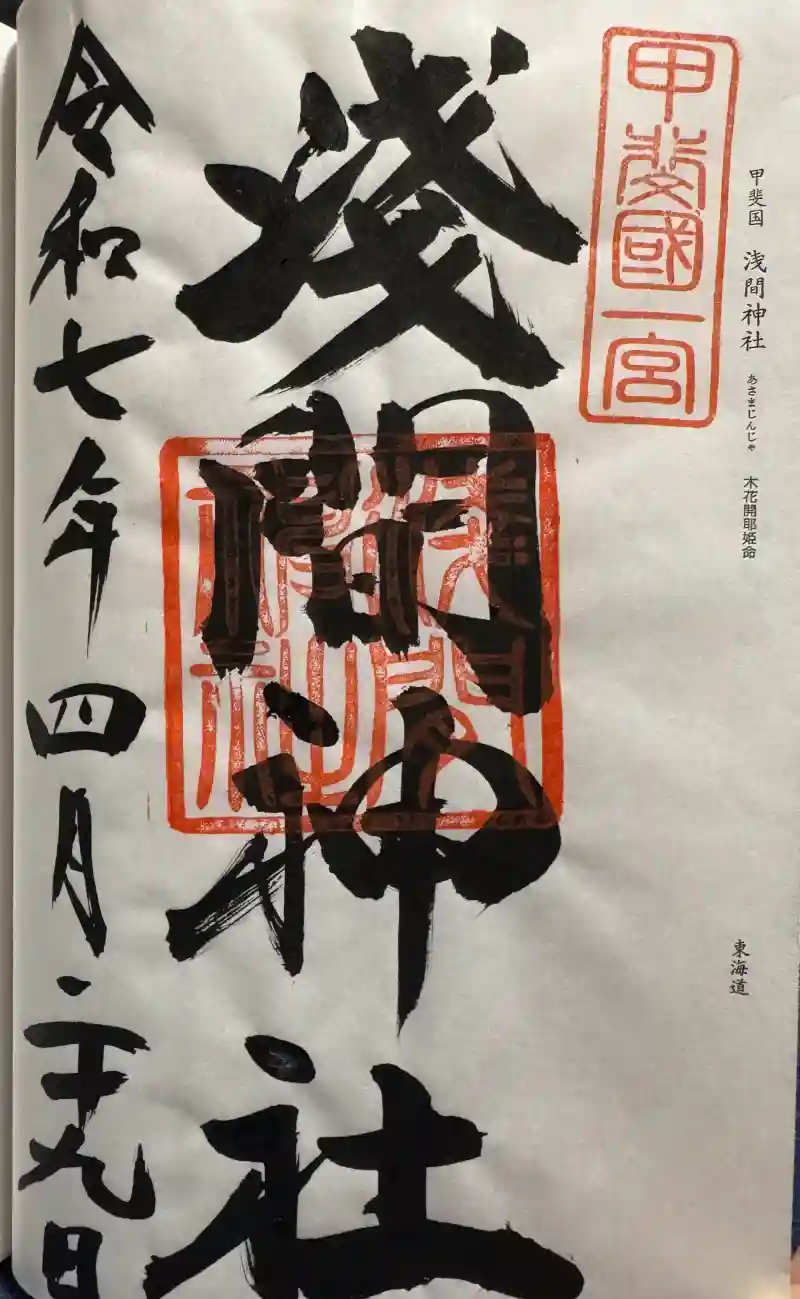 甲斐国 浅間神社 あさまじんじゃ 木花開耶姫命
東海道
甲斐國一宮
淺間神社
淺間
神社
令和七年四月二十九日